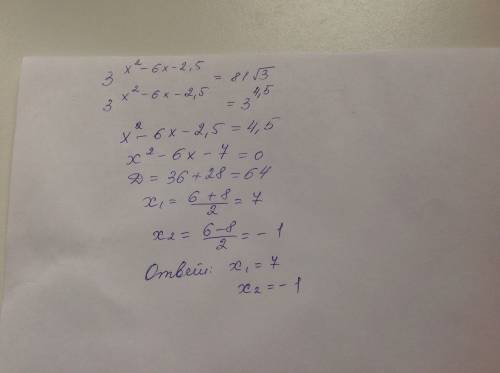 3^(x²-6x-2,5) = 81√3
3^(x²-6x-2,5) = 3^4,5
x²-6x-2,5=4,5
x²-6x-7=0
D=36+28=64
x₁= (6+8)/2 =7
x₂= (6-8)/2 =-1
Ответ: x₁=7
x₂=-1